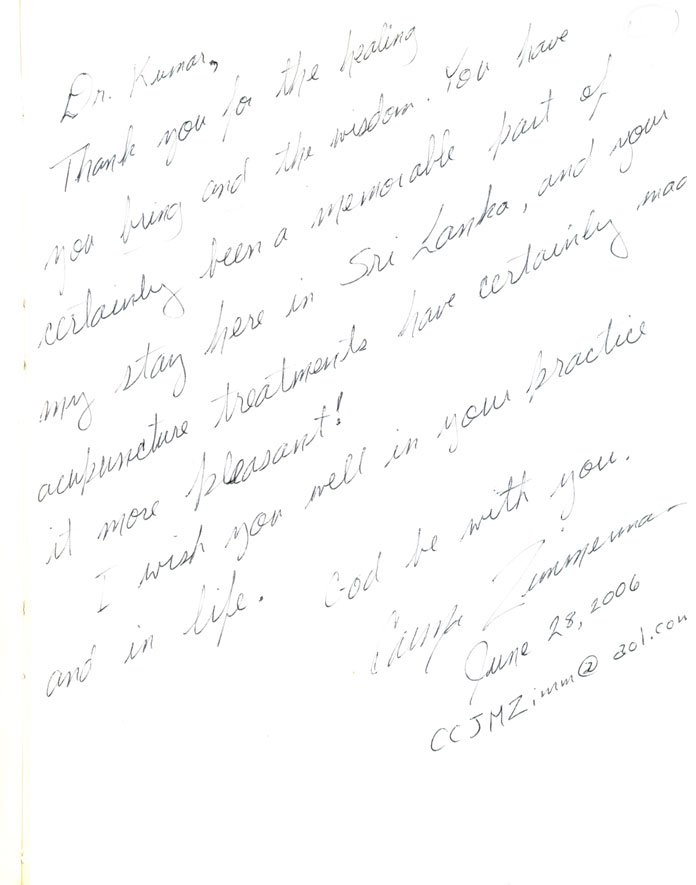 Dr. Kumar,
Thank you for the healing
you bring and the wisdom. You have
certainly been a memorable part of
my stay here in Sri Lanka, and your
acupuncture treatments have certainly mad
it more pleasant!
I wish you well in your practice
and in life. God be with you.
Zimmerman
June 28, 2006
CCJMZimm@aol.com